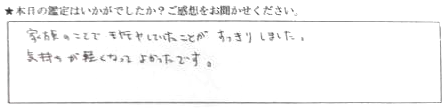 ★本日の鑑定はいかがでしたか？ご感想をお聞かせください。
家族のことでモヤモヤしていたことがすっきりしました。
気持ちが軽くなってよかったです。